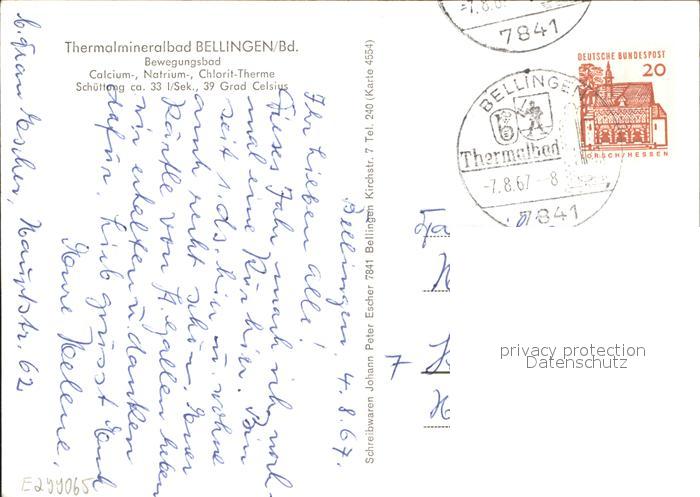 Thermalmineralbad BELLINGEN/Bd.
Bewegungsbad
Calcium-, Natrium-, Chlorit-Therme
Schüttung ca. 33 l/Sek., 39 Grad Celsius
Bellingen, 4.8.67.
Ihr Lieben alle!
Dieses Jahr mach ich noch
mal eine Kur hier. Bin
seit 1. ds. hier u. wohne
auch recht schön. Euer
Kärtle von St. Gallen haben
wir erhalten u. danken
dafür. Lieb grüsst Euch
Eure Helene.
b. Frau Escher, Hauptstr. 62
E299065
Schreibwaren Johann Peter Escher 7841 Bellingen Kirchstr. 7 Tel. 240 (Karte 4554)
-7.8.6
7841
BELLINGEN
Thermalbad
-7.8.67--8
7841
DEUTSCHE BUNDESPOST
20
LORSCH/HESSEN
7
privacy protection
Datenschutz